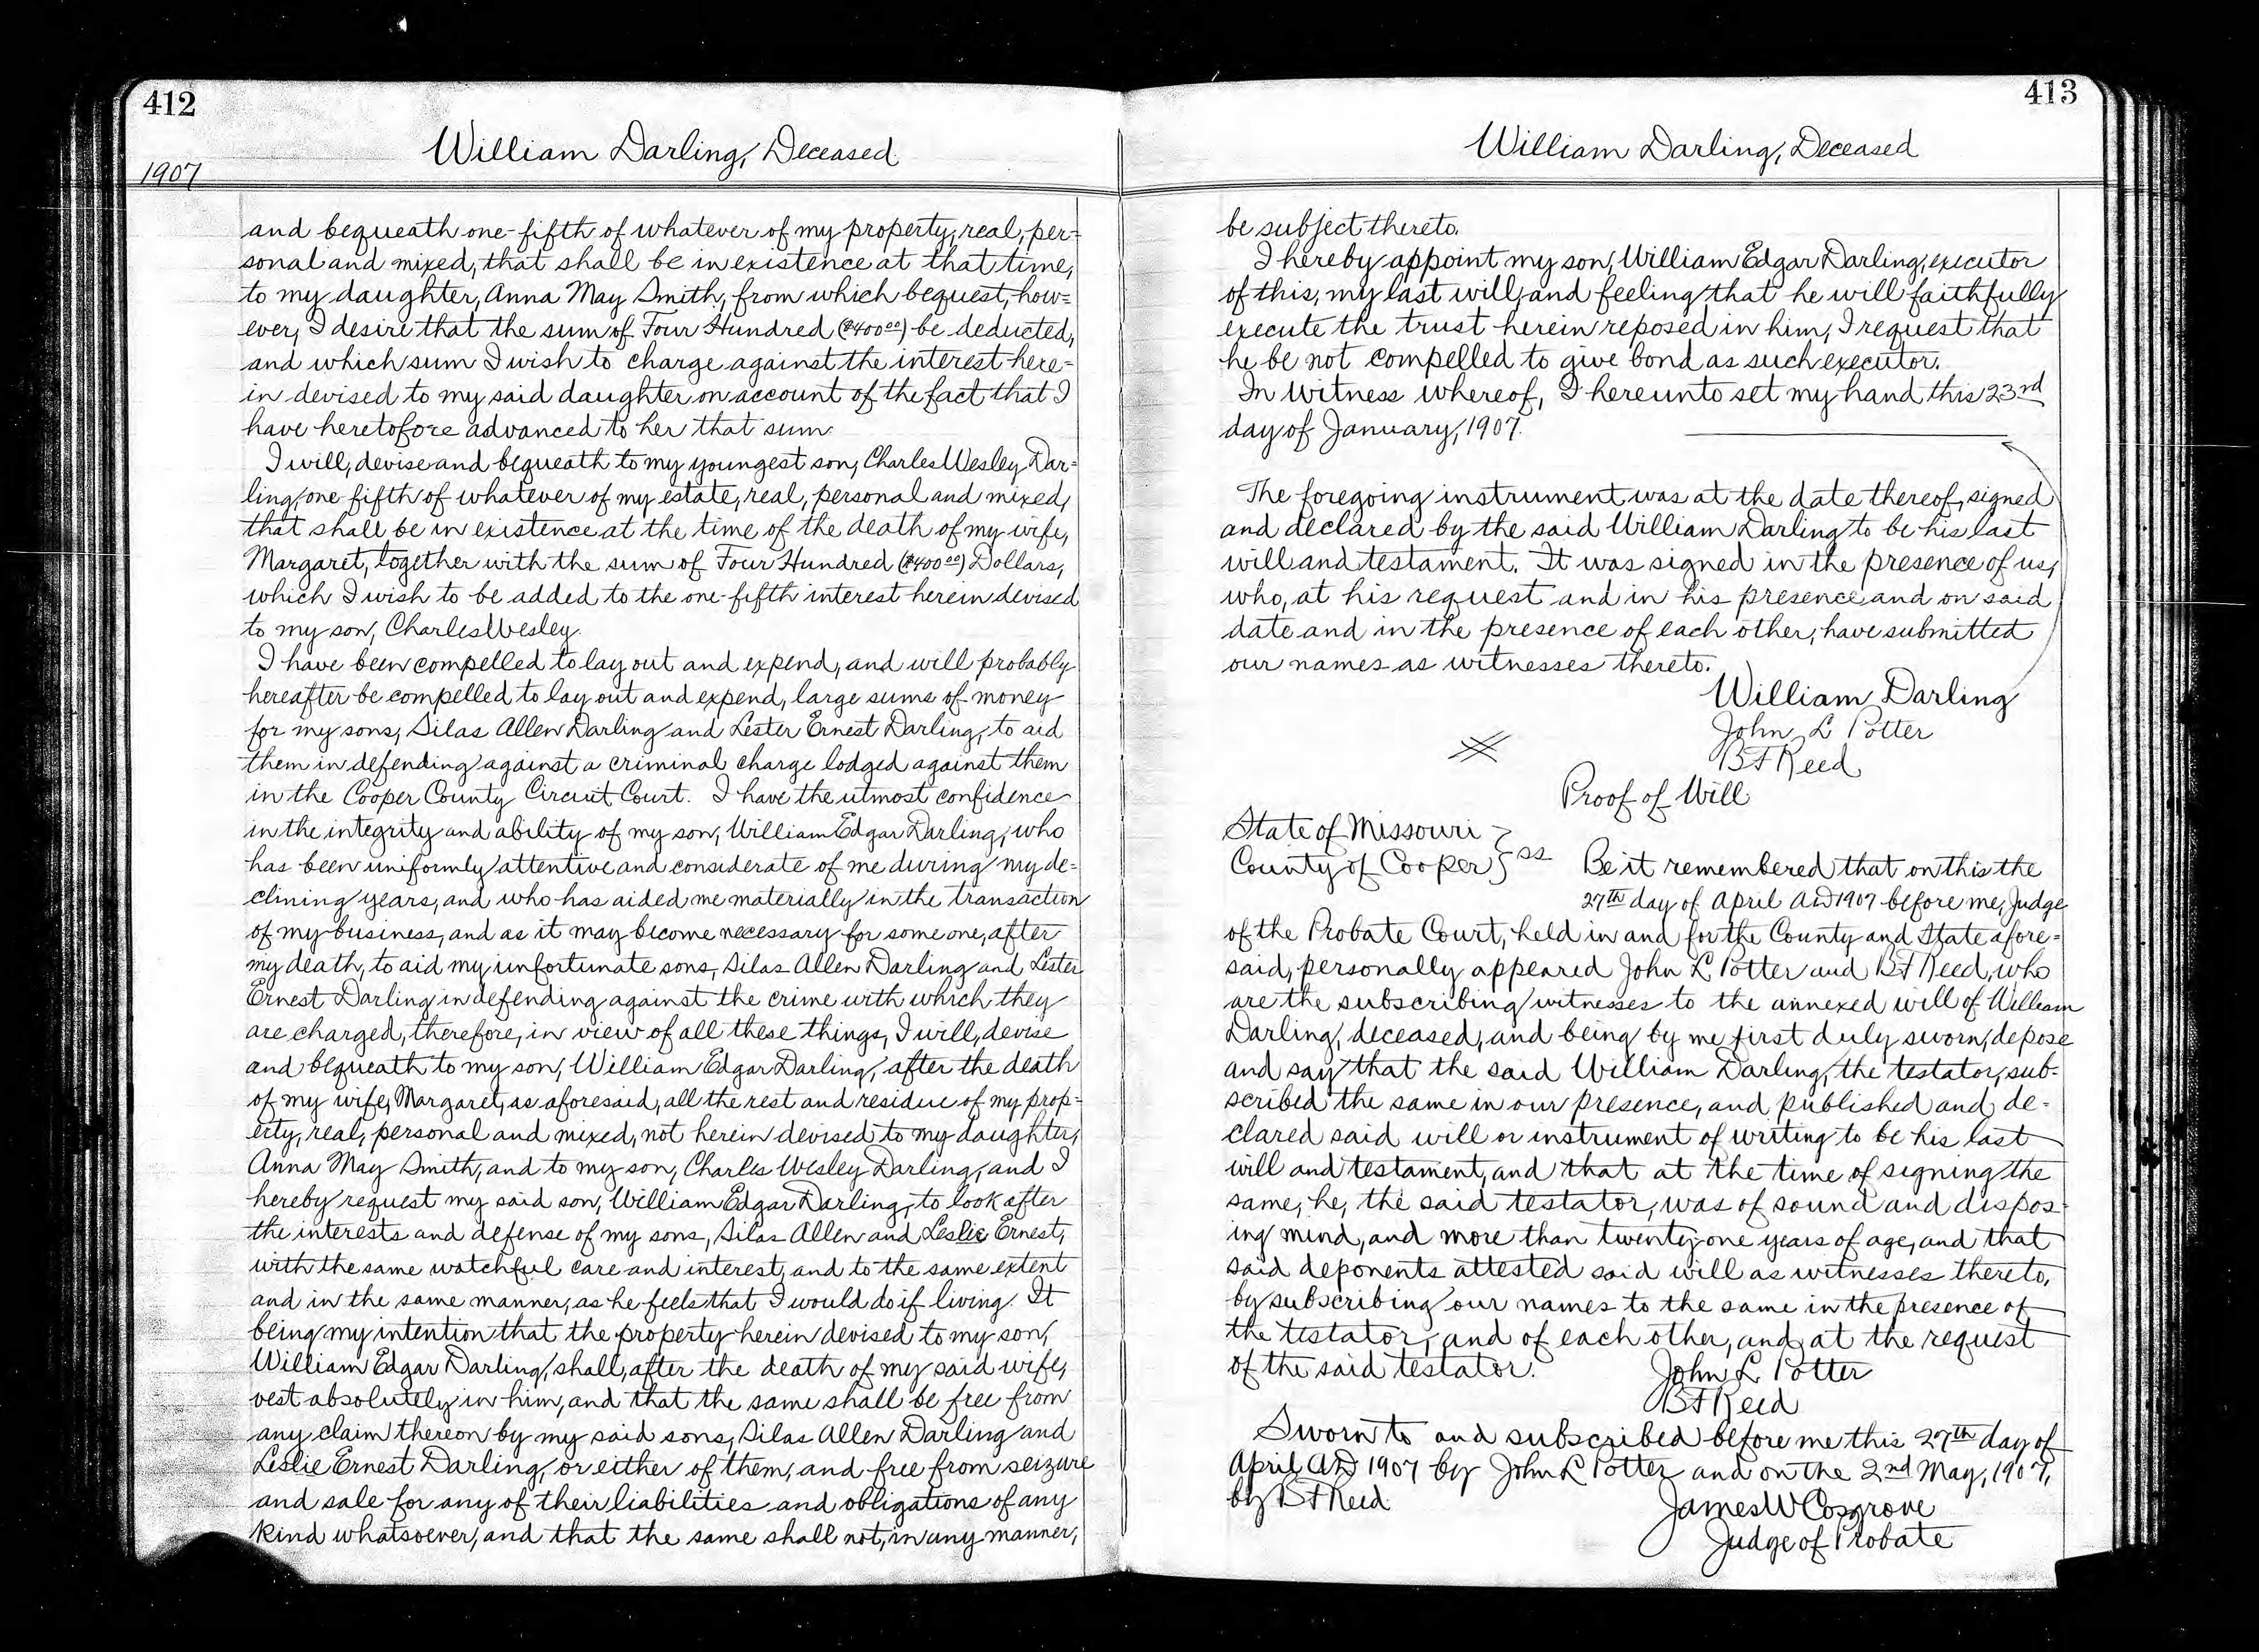 412
William Darling, Deceased
1907
and bequeath one-fifth of whatever of my property, real, per=
sonal and mixed, that shall be in existence at that time,
to my daughter, Anna May Smith, from which bequest, how=
ever, I desire that the sum of Four Hundred ($400.00) be deducted,
and which sum I wish to charge against the interest here=
in devised to my said daughter on account of the fact that I
have heretofore advanced to her that sum.
I will, devise and bequeath to my youngest son, Charles Wesley Dar=
ling, one-fifth of whatever of my estate, real, personal and mixed,
that shall be in existence at the time of the death of my wife,
Margaret, together with the sum of Four Hundred ($400.00) Dollars,
which I wish to be added to the one-fifth interest herein devised
to my son, Charles Wesley.
I have been compelled to lay out and expend, and will probably
hereafter be compelled to lay out and expend, large sums of money
for my sons, Silas Allen Darling and Lester Ernest Darling, to aid
them in defending against a criminal charge lodged against them
in the Cooper County Circuit Court. I have the utmost confidence
in the integrity and ability of my son, William Edgar Darling, who
has been uniformly attentive and considerate of me during my de=
clining years, and who has aided me materially in the transaction
of my business, and as it may become necessary for some one, after
my death, to aid my unfortunate sons, Silas Allen Darling and Lester
Ernest Darling in defending against the crime with which they
are charged, therefore, in view of all these things, I will, devise
and bequeath to my son, William Edgar Darling, after the death
of my wife, Margaret, as aforesaid, all the rest and residue of my prop=
erty, real, personal and mixed, not herein devised to my daughter,
Anna May Smith, and to my son, Charles Wesley Darling, and I
hereby request my said son, William Edgar Darling, to look after
the interests and defense of my sons, Silas Allen and Leslie Ernest,
with the same watchful care and interest, and to the same extent
and in the same manner, as he feels that I would do if living. It
being my intention that the property herein devised to my son,
William Edgar Darling, shall, after the death of my said wife,
vest absolutely in him, and that the same shall be free from
any claim thereon by my said sons, Silas Allen Darling and
Leslie Ernest Darling, or either of them, and free from seizure
and sale for any of their liabilities and obligations of any
kind whatsoever, and that the same shall not, in any manner,
413
William Darling, Deceased
be subject thereto.
I hereby appoint my son, William Edgar Darling, executor
of this, my last will, and feeling that he will faithfully
execute the trust herein reposed in him, I request that
he be not compelled to give bond as such executor.
In Witness whereof, I hereunto set my hand this 23rd
day of January, 1907.
The foregoing instrument was at the date thereof, signed
and declared by the said William Darling to be his last
will and testament. It was signed in the presence of us,
who, at his request and in his presence and on said
date and in the presence of each other, have submitted
our names as witnesses thereto.
William Darling
John L Potter
B F Reed
Proof of Will
State of Missouri
County of Cooper } ss Be it remembered that on this the
27th day of April AD 1907 before me, Judge
of the Probate Court, held in and for the County and State afore=
said, personally appeared John L Potter and B F Reed, who
are the subscribing witnesses to the annexed will of William
Darling, deceased, and being by me first duly sworn, depose
and say that the said William Darling, the testator, sub-
scribed the same in our presence, and published and de-
clared said will or instrument of writing to be his last
will and testament, and that at the time of signing the
same, he, the said testator, was of sound and dispos-
ing mind, and more than twenty-one years of age, and that
said deponents attested said will as witnesses thereto,
by subscribing our names to the same in the presence of
the testator, and of each other, and at the request
of the said testator. John L Potter
B F Reed
Sworn to and subscribed before me this 27th day of
April AD 1907 by John L Potter and on the 2nd May, 1907,
by B F Reed.
James W Cosgrove
Judge of Probate